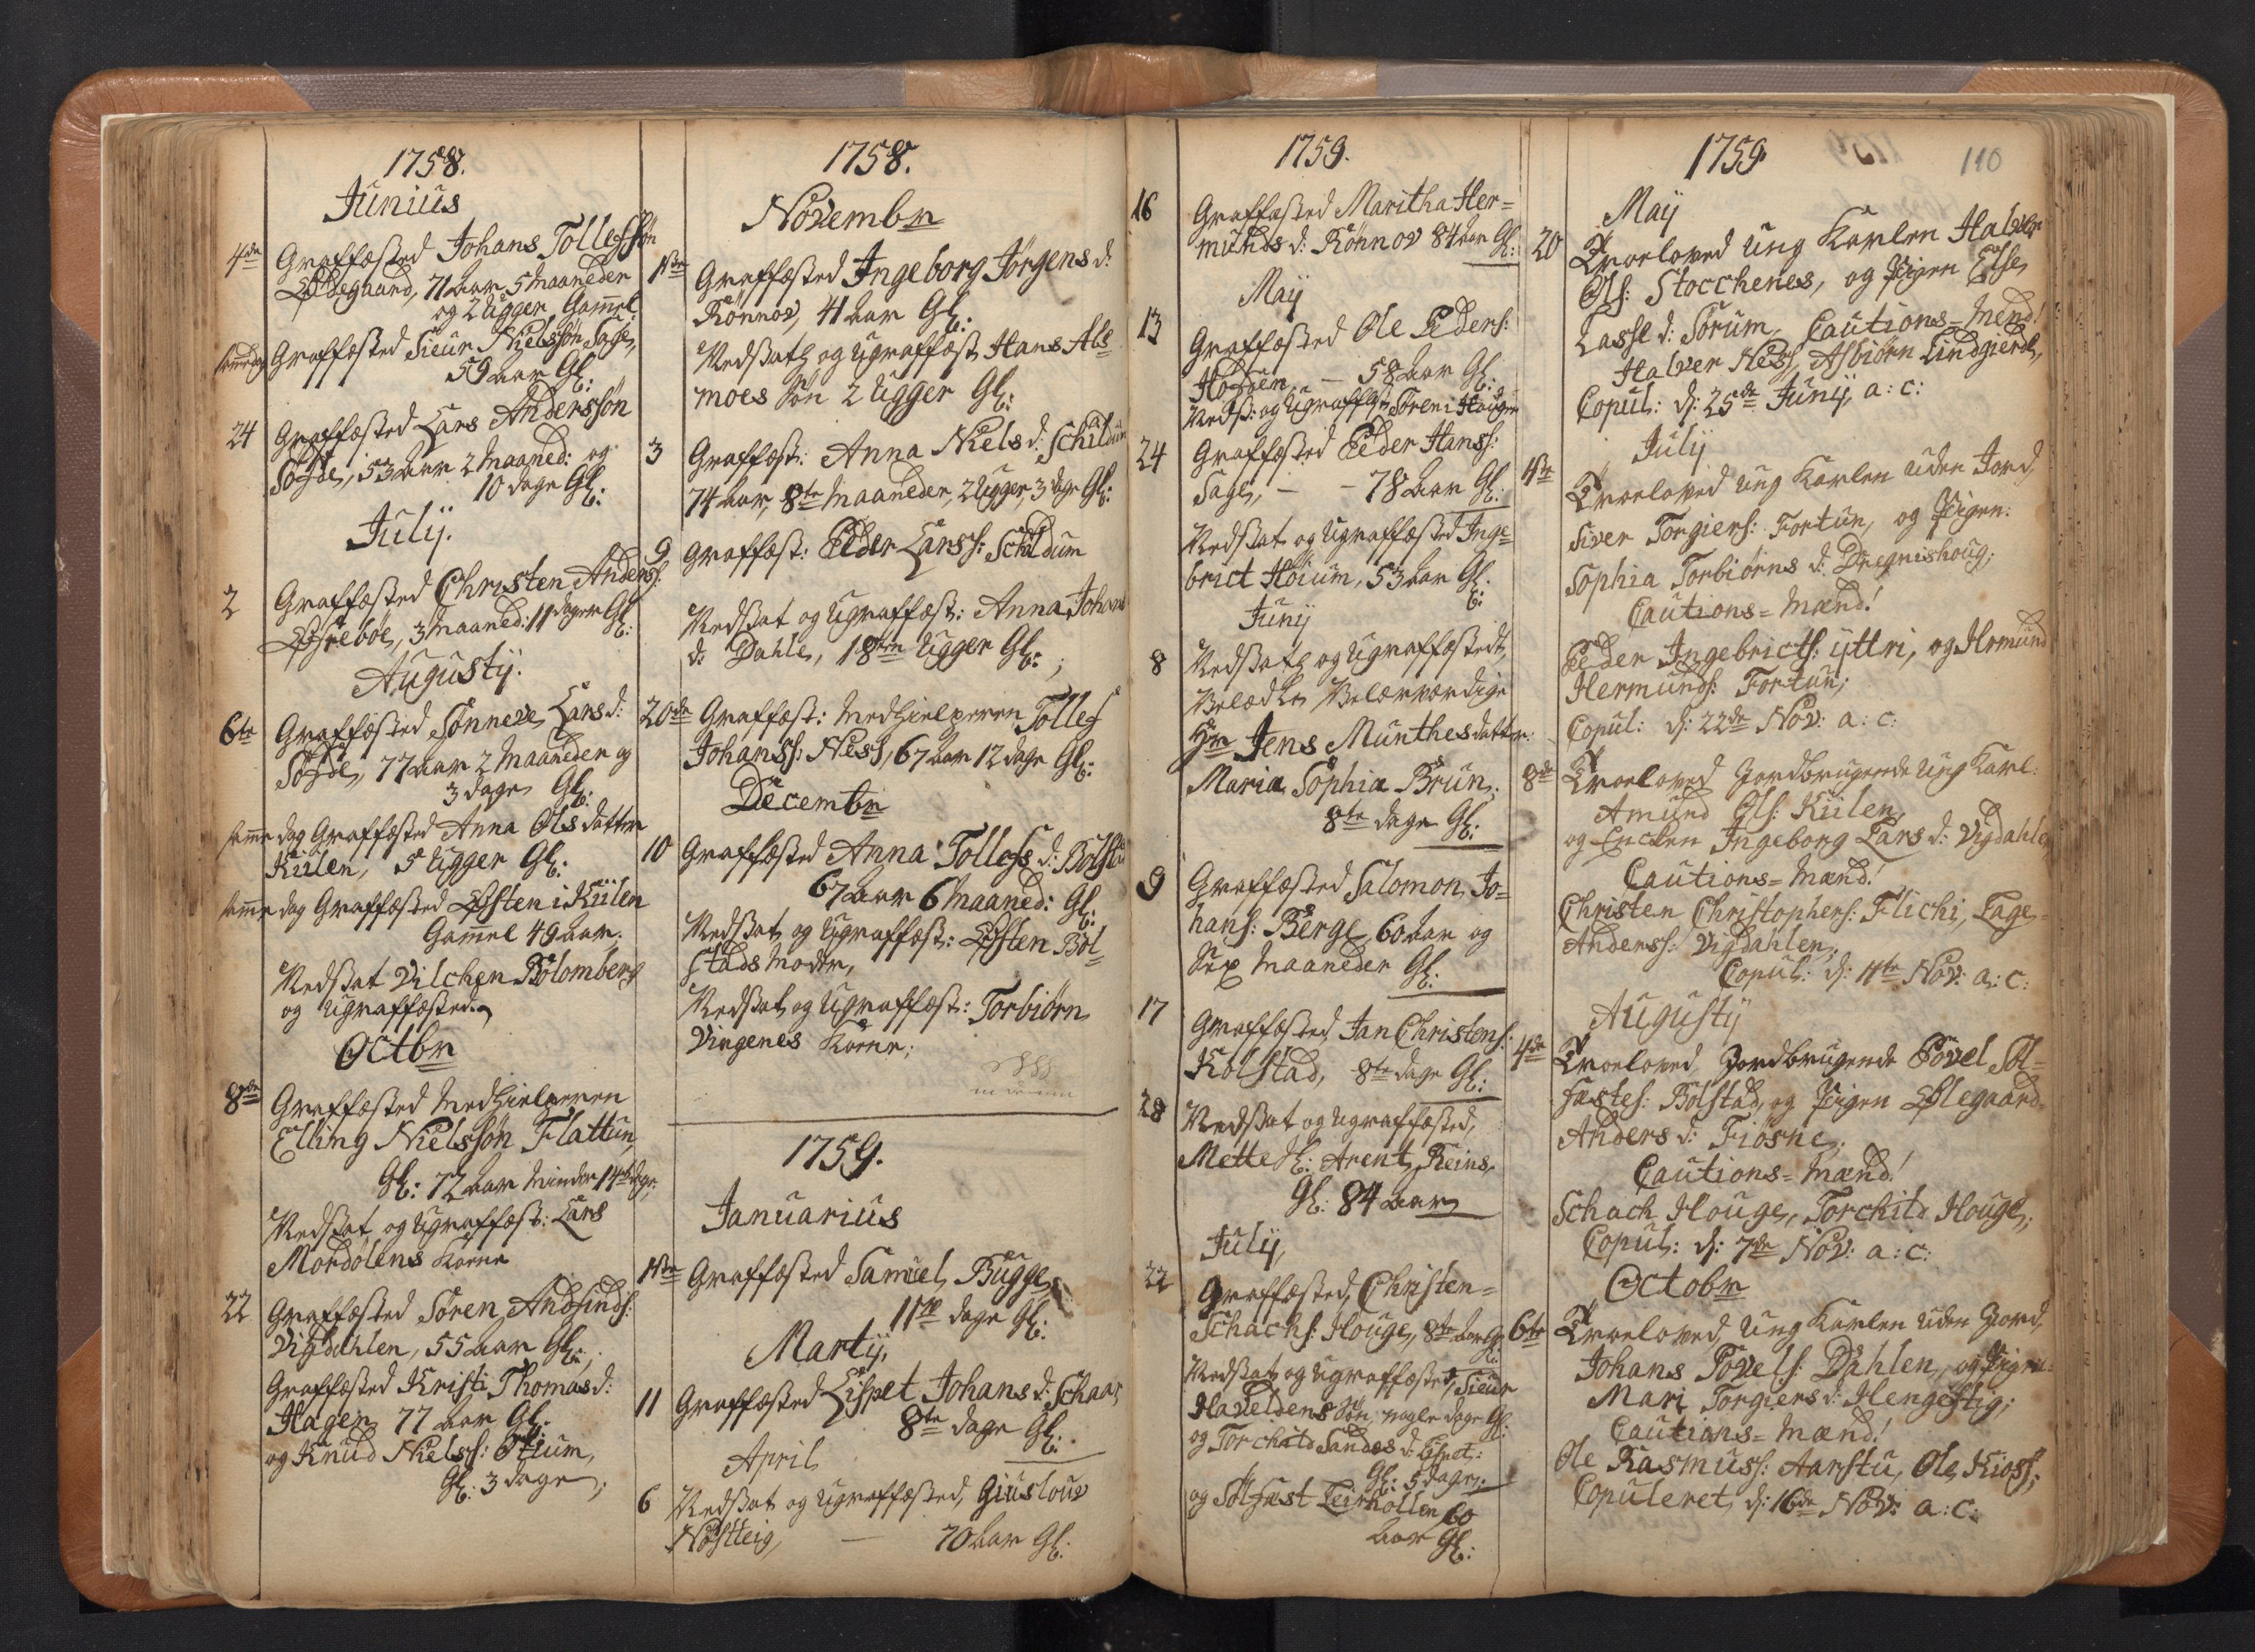 1758.
Junius
4de Graffæsted Johans Tollefssøn
Ødegaard, 71 aar 5 Maaneder
og 2 Uger Gammel
samedag Graffæsted Sieur Nielssøn Sage,
59 aar Gl:
24 Graffæsted Lars Anderssøn
53 aar 2 Maaned: og
10 dage Gl:
Julij.
2 Graffæsted Christen Anderss:
Øfrebøe, 3 Maaned: 11 dager Gl:
Augustij.
6te Graffæsted Sønneve Lars d:
77 aar 2 Maaneder og
3 dage Gl:
samme dag Graffæsted Anna Ols datter
Kiilen, 5 Ugger Gl:
samme dag Graffæsted Østen i Kiilen
Gammel 49 aar.
Nedsat Vilchen Blomberg
og Ugraffæsted.
Octbr
8de Graffæsted Medhielperen
Elling Nielssøn Flattun,
Gl: 72 aar minder 14 dage,
Nedsat og Ugraffæst: Lars
Mordølens Kone
22 Graffæsted Søren Andfinds:
Vigdahlen, 55 aar Gl:,
Graffæsted Kristi Thomas d:
Hagen 77 aar Gl:
og Knud Nielss: Otium,
Gl: 3 dage;
1758.
Novembr
1ste Graffæsted Ingeborg Jørgens d:
Rønnov, 41 aar Gl:
Nedsat og Ugraffæst Hans Ale
moes Søn 2 Ugger Gl:
3 Graffæst: Anna Niels d: Schildum
74 aar, 8te Maaneder, 2 Ugger, 3 dage Gl:
9 Graffæst: Peder Larss: Schildum
Nedsat og Ugraffæst: Anna Johans
d: Dahle, 18ten Ugger Gl:;
20de Graffæst: Medhielperen Tollef
Johanss: Ness, 67 aar 12 dage Gl:
Decembr
10 Graffæsted Anna Tollefs d: Bolsta
67 aar 6 Maaned: Gl:
Nedsat og Ugraffæst: Østen Bol-
stads Moder,
Nedsat og Ugraffæst: Torbiørn
Vingenes Kone;
1759.
Januarius
1ste Graffæsted Samuel Bugge,
11te dage Gl:
Martij,
11 Graffæsted Lispet Johans d: Schaar
8te dage Gl:
April
6 Nedsat og Ugraffæsted, Giuslouv
Nøsteig, – 70 aar Gl:
1759.
16 Graffæsted Maritha Her=
munds d: Rønnov 84 aar Gl:
Maij
13 Graffæsted Ole Peders:
– 58 aar Gl:
Neds: og Ugraffæst Søren i Haugen
24 Graffæsted Peder Hanss:
Sage, – – 78 aar Gl:
Nedsat og Ugraffæsted Inge=
brict Høium, 53 aar Gl:
Junij
8 Nedsat og Ugraffæsted,
Velædle Velærværdige
Hr Jens Munthes datter
Maria Sophia Brun,
8te dage Gl:
9 Graffæsted Salomon Jo=
hans: Berge, 60 aar og
Sex Maaneder Gl:
17 Graffæsted Jan Christens:
Kolstad, 8te dage Gl:
28 Nedsat og Ugraffæsted,
Mette Arent Reins,
Gl: 84 aar
Julij,
22 Graffæsted, Christen=
Schachs: Houge, 8te aar Gl:
Nedsat og Ugraffæsted, Sieur
Haveldens Søn, nogle dage Gl:
og Torchild Sandes d: Lispet:
Gl: 5 dage,
og Solfæst Leirhollen 60
aar Gl:
1759 110
Maij
20 Troeloved Ung Karlen Halver
Ols: Stocchenes, og Pigen Else
Lasse d: Sorum, Cautions=Mend!
Halver Ness, Asbiørn Lindgierde,
Copul: d: 25de Junij, a: c:
Julij
1ste Troeloved Ung Karlen uden Jord,
Siver Torgiers: Fortun, og Pigen:
Sophia Torbiørns d: Dregnishoug;
Cautions=Mænd!
Peder Ingebricts: ÿttri, og Hermund
Hermunds: Fortun;
Copul: d: 22de Nov: a: c:
8de Troeloved Jordbrugende Ung Karl:
Amund Ols: Kiilen,
og Encken Ingeborg Lars d: Vigdahlen
Cautions=Mænd!
Christen Christophers: Flichi, Tage=
Anderss: Vigdahlen;
Copul: d: 11te Nov: a: c:
Augustij
4de Troeloved, Jordbrugende Povel Sol=
fæstes: Bolstad, og Pigen Ølegaard=
Anders d: Fiøsne;
Cautions=Mænd!
Schach Houge, Torchild Houge,
Copul: d: 7de Nov: a: c:
Octobr
6te Troeloved, Ung Karlen uden Jord,
Johans Povels: Dahlen, og Pigen
Mari Torgiers d: Hengestig;
Cautions=Mænd!
Ole Rasmuss: Aarstu, Ole Kioss;
Copuleret, d: 16de Nov: a: c: